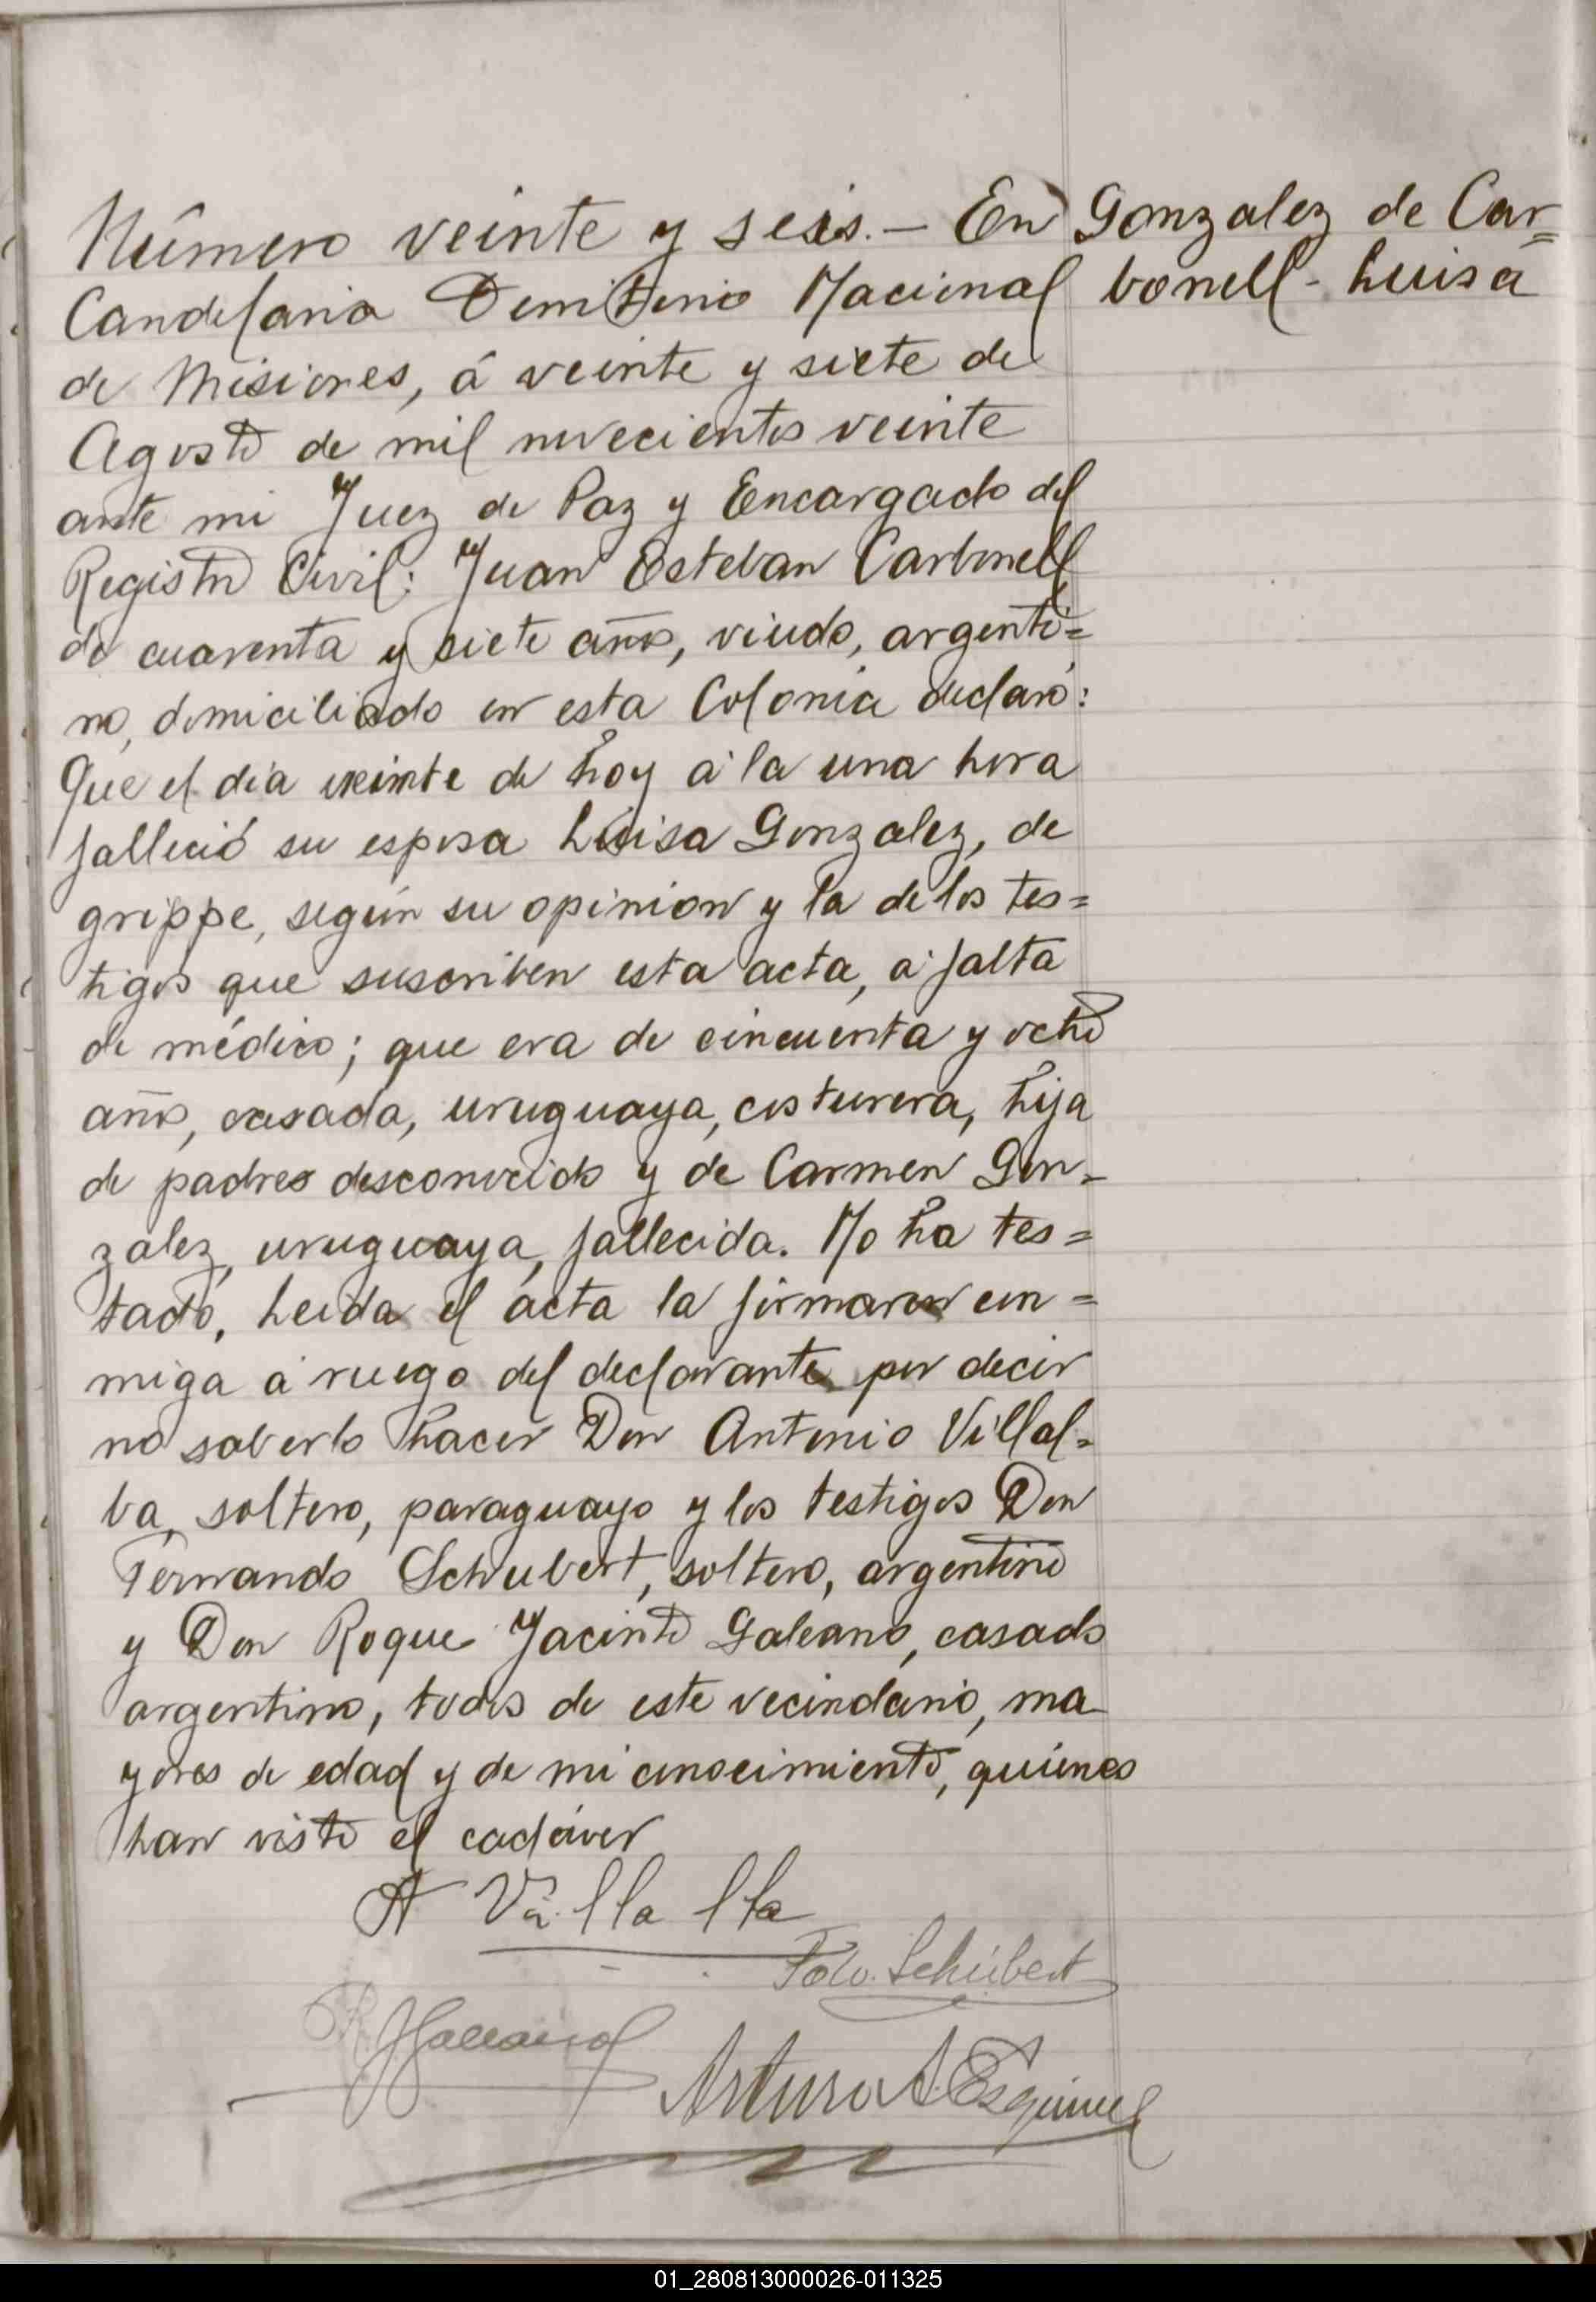 Número veinte y seis.— En
Candelaria Territorio Nacional
de Misiones, á veinte y siete de
Agosto de mil novecientos veinte
ante mi Juez de Paz y Encargado del
Registro Civil: Juan Esteban Carbonell
de cuarenta y siete años, viudo, argenti=
no, domiciliado en esta Colonia declaró:
Que el dia veinte de hoy a la una hora
falleció su esposa Luisa Gonzalez, de
grippe, según su opinion y la de los tes=
tigos que suscriben esta acta, a falta
de médico; que era de cincuenta y ocho
años, casada, uruguaya, costurera, hija
de padres desconocido y de Carmen Gon-
zalez, uruguaya, fallecida. No ha tes=
tado, Leida el acta la firmaron con=
migo a ruego del declarante por decir
no saberlo hacer Don Antonio Villal=
ba, soltero, paraguayo y los testigos Don
Fernando Schubert, soltero, argentino
y Don Roque Jacinto Galeano, casado
argentino, todos de este vecindario, ma
yores de edad y de mi conocimiento, quienes
han visto el cadáver
Gonzalez de Car=
bonell - Luisa
A Villalba
Fdo. Schubert
R J Galeano
Arturo A. Esquivel
01_280813000026-011325